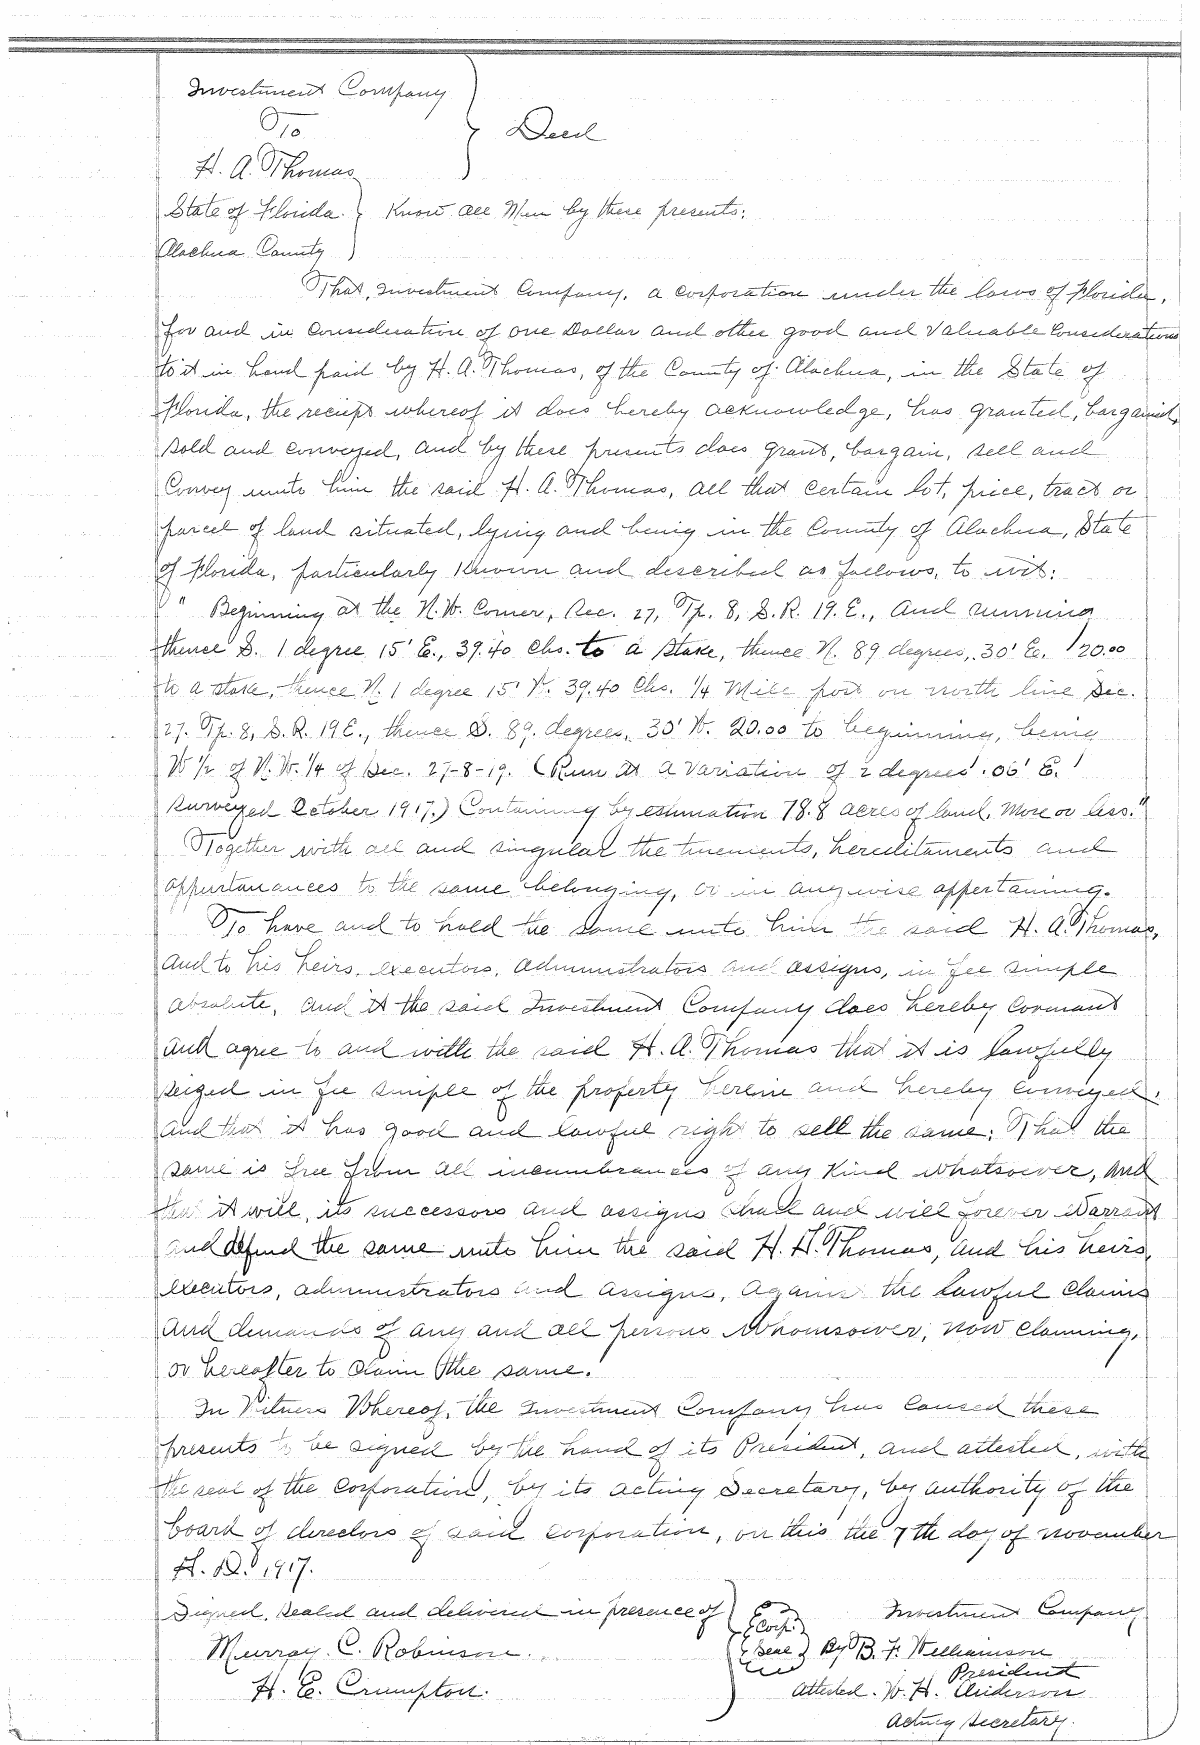 Investment Company
To } Deed
H. A. Thomas
State of Florida. } Know all Men by these presents:
Alachua County
That, Investment Company, a corporation under the laws of Florida,
for and in consideration of one Dollar and other good and valuable considerations
to it in hand paid by H. A. Thomas, of the County of Alachua, in the State of
Florida, the receipt whereof it does hereby acknowledge, has granted, bargained,
sold and conveyed, and by these presents does grant, bargain, sell and
Convey unto him the said H. A. Thomas, all that certain lot, piece, tract or
parcel of land situated, lying and being in the County of Alachua, State
of Florida, particularly known and described as follows, to wit:
" Beginning at the N.W. Corner, Sec. 27, Tp. 8, S. R. 19. E., and running
thence S. 1 degree 15' E., 39.40 Chs. to a stake, thence N. 89 degrees, 30' E. 20.00
to a stake, thence N. 1 degree 15' W. 39.40 Chs. 1/4 Mile post on north line Sec.
27. Tp. 8, S. R. 19 E., thence S. 89. degrees, 30' W. 20.00 to beginning, being
W 1/2 of N. W. 1/4 of Sec. 27-8-19. (Run at a variation of 2 degrees . 06' E.
surveyed October 1917.) Containing by estimation 78.8 acres of land, more or less."
Together with all and singular the tenements, hereditaments and
appurtanances to the same belonging, or in anywise appertaining.
To have and to hold the same unto him the said H. A. Thomas,
and to his heirs, executors, administrators and assigns, in fee simple
absolute, and it the said Investment Company does hereby covenant
and agree to and with the said H. A. Thomas that it is lawfully
seized in fee simple of the property herein and hereby conveyed.
and that it has good and lawful right to sell the same; That the
same is free from all incumbrances of any kind whatsoever, and
that it will, its successors and assigns shall and will forever warrant
and defend the same unto him the said H. A. Thomas, and his heirs,
executors, administrators and assigns, against the lawful claims
and demands of any and all persons whomsoever, now claiming,
or hereafter to claim the same.
In Witness Whereof, the Investment Company has caused these
presents to be signed by the hand of its President, and attested, with
the seal of the corporation, by its acting Secretary, by authority of the
board of directors of said corporation, on this the 7th day of November
A. D. 1917.
Signed, sealed and delivered in presence of } Investment Company
Murray. C. Robinson. (Corp. Seal) By B. F. Williamson
President
H. E. Crumpton. Attested. W. H. Anderson
Acting Secretary.